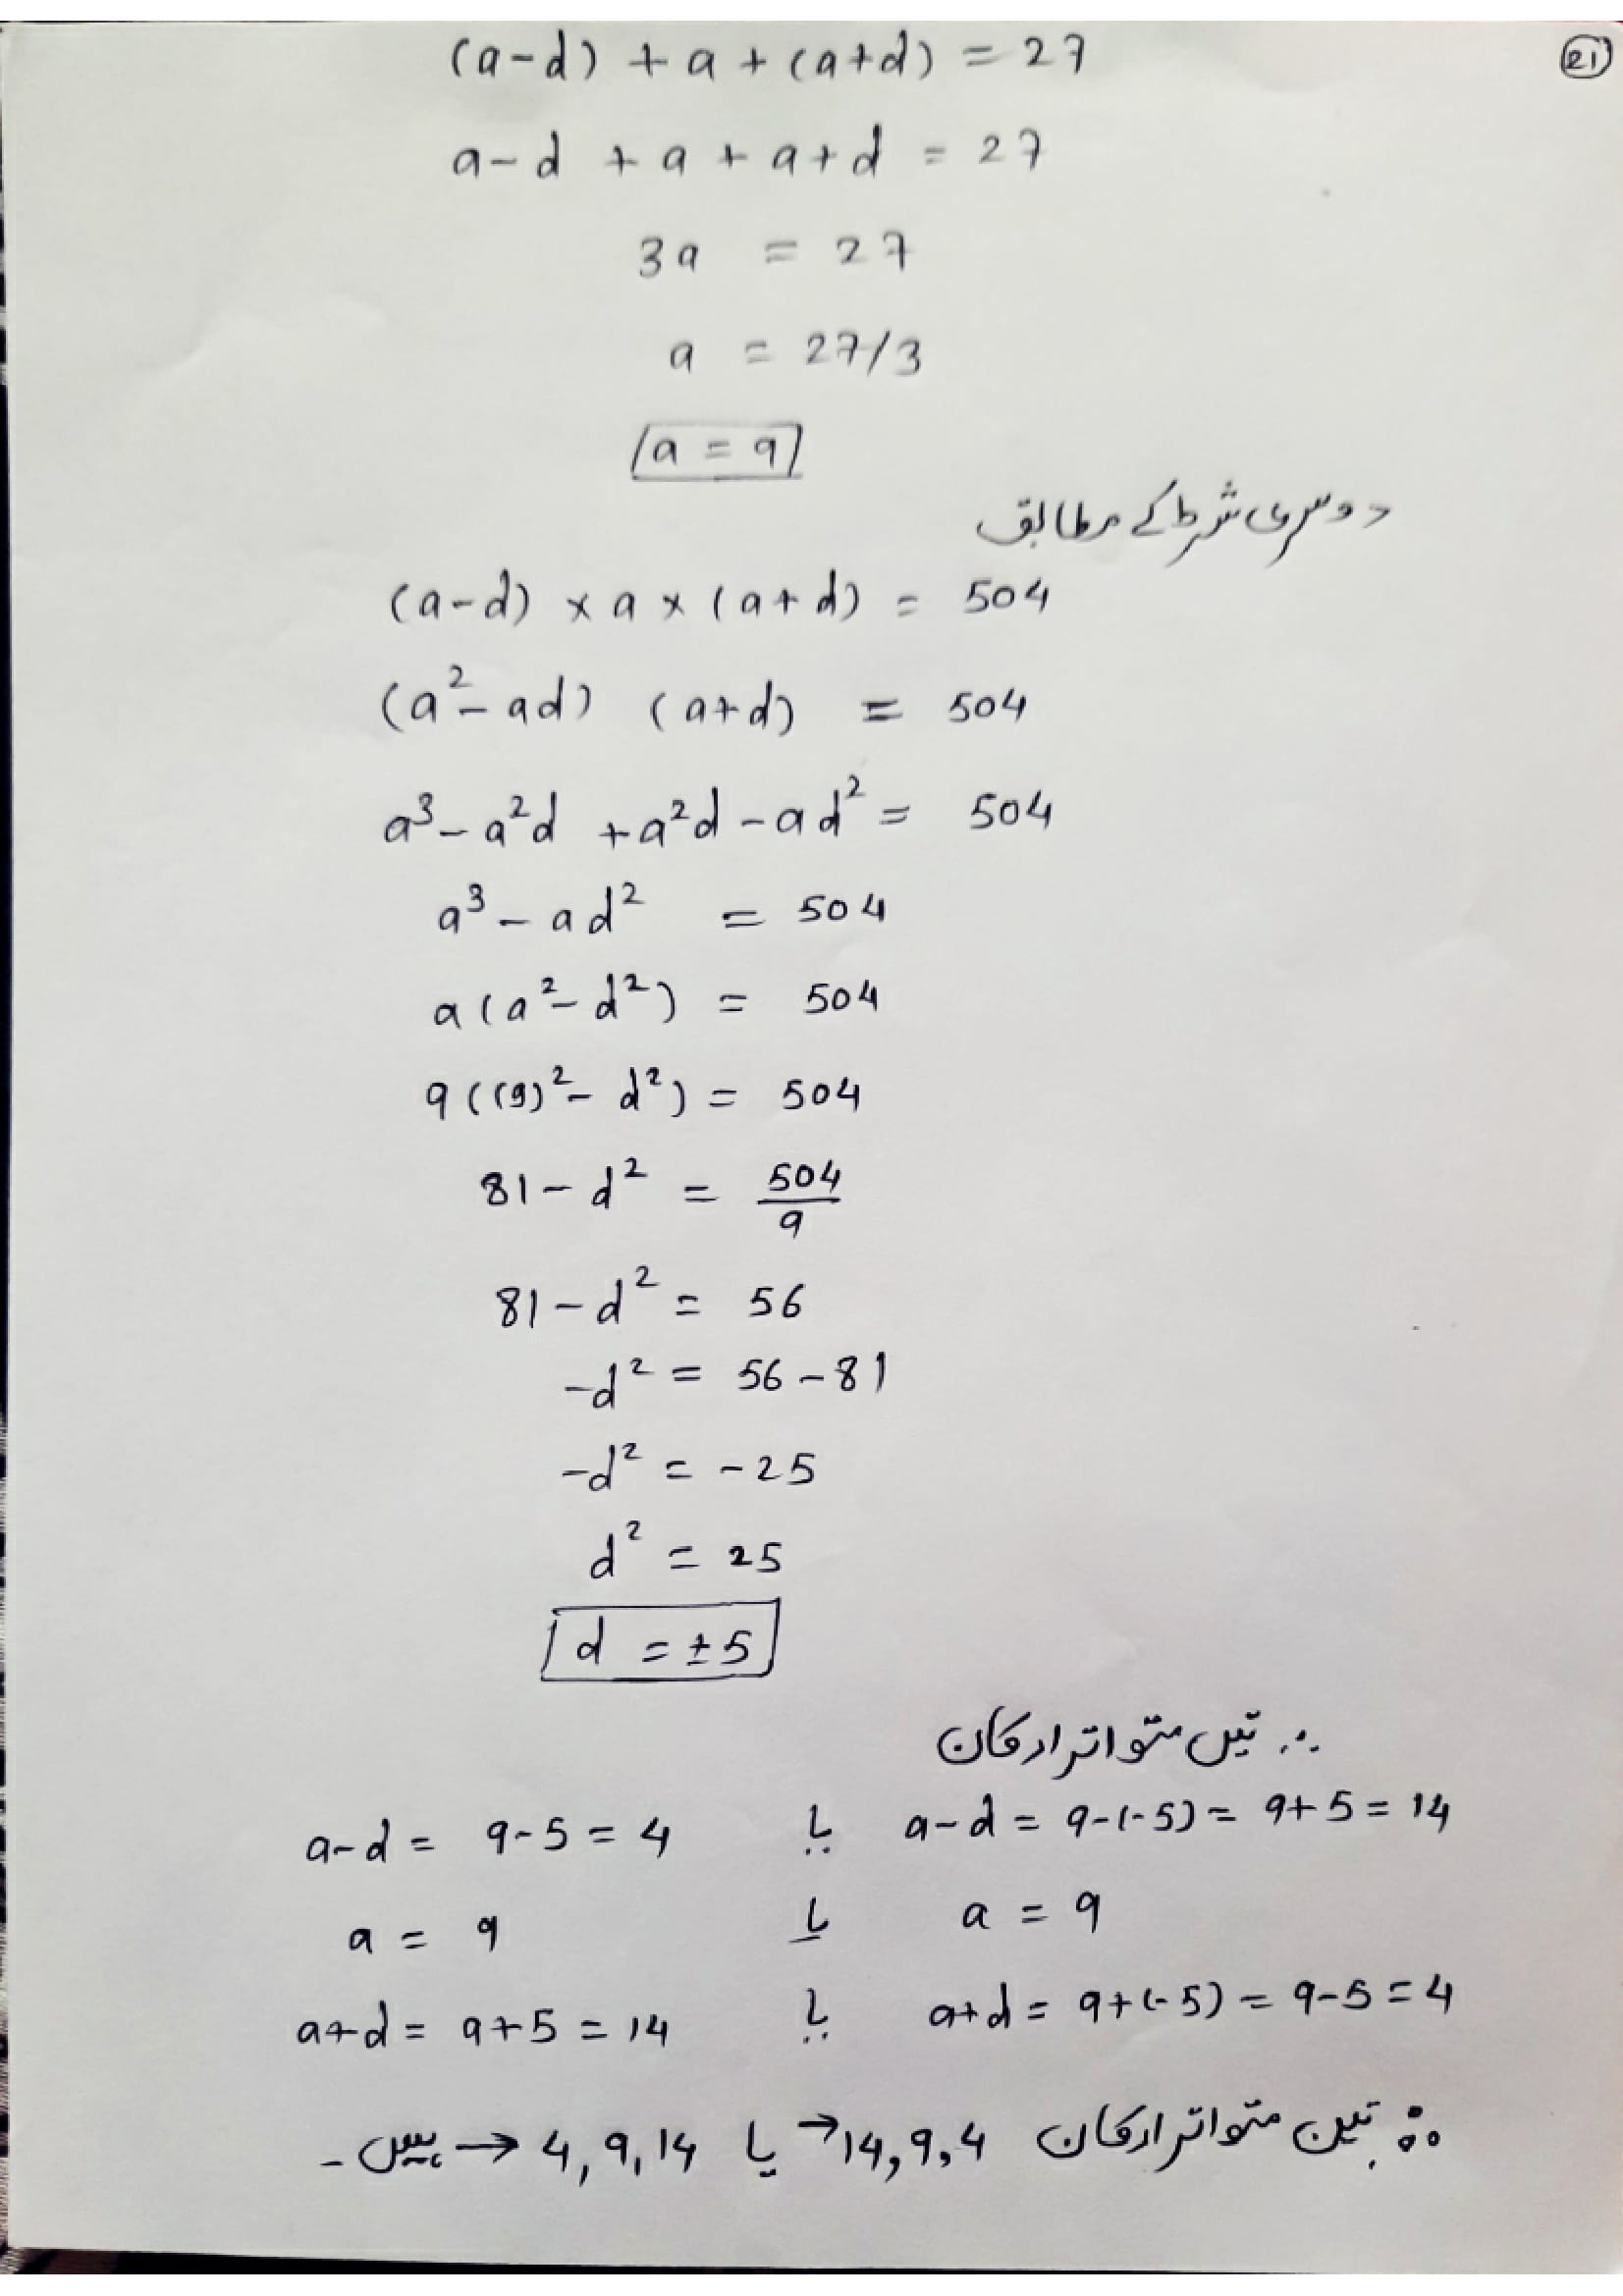 (21)
(a-d) + a + (a+d) = 27
a-d + a + a+d = 27
3a = 27
a = 27/3
a = 9
دوسری شرط کے مطابق
(a-d) × a × (a+d) = 504
(a²-ad) (a+d) = 504
a³-a²d +a²d-ad² = 504
a³-ad² = 504
a(a²-d²) = 504
9((9)²-d²) = 504
81-d² = 504/9
81-d² = 56
-d² = 56-81
-d² = -25
d² = 25
d = ±5
∴ تین متواتر ارکان
a-d = 9-5 = 4 یا a-d = 9-(-5) = 9+5 = 14
a = 9 یا a = 9
a+d = 9+5 = 14 یا a+d = 9+(-5) = 9-5 = 4
∴ تین متواتر ارکان 14,9,4 → یا 4,9,14 → ہیں۔